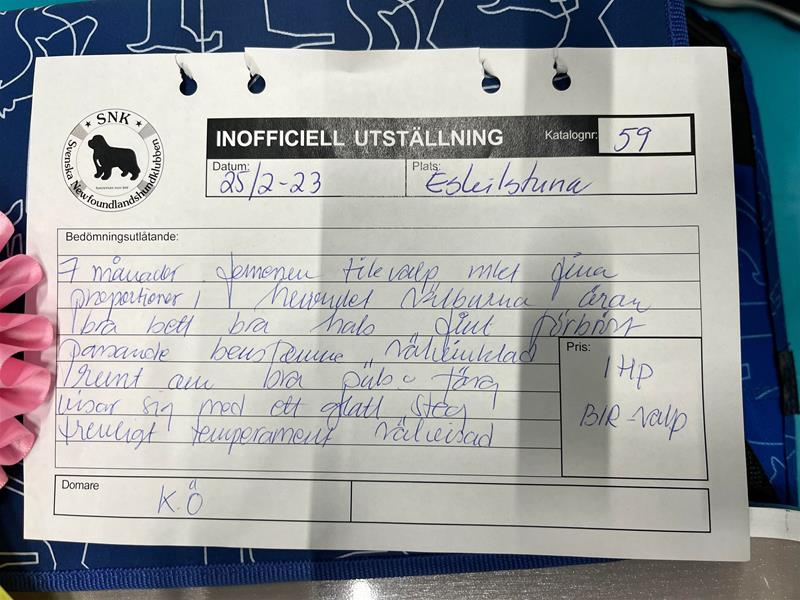 SNK
Svenska Newfoundlandshundklubben
INOFFICIELL UTSTÄLLNING
Katalognr: 59
Datum: 25/2-23
Plats: Eskilstuna
Bedömningsutlåtande:
7 månader feminin tikvalp mkt fina
proportioner i huvudet välburna öron
bra bett bra hals fint förbröst
passande benstomme välvinklad
runt om bra päls o färg
visar sig med ett glatt steg
trevligt temperament välvisad
Pris:
1 Hp
BIR-valp
Domare
K.Ö